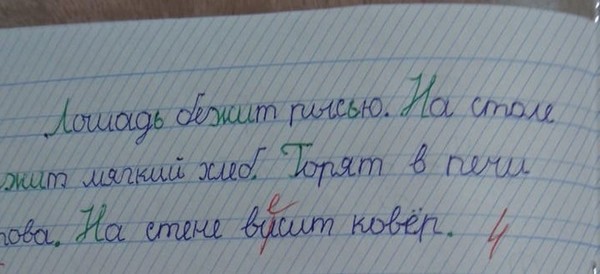 Лошадь бежит рысью. На столе
жит мягкий хлеб. Горят в печи
ова. На стене висит ковёр. 4